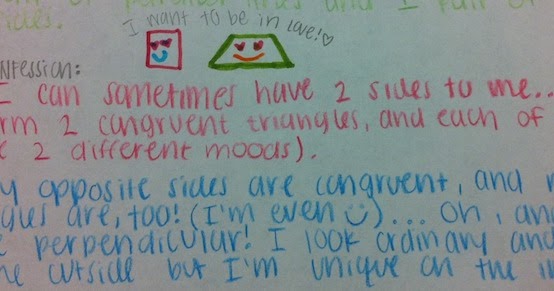 sides.
I want to be in love!♡
nfession:
I can sometimes have 2 sides to me..
rm 2 congruent triangles, and each of
2 different moods).
y opposite sides are congruent, and
gles are, too! (I'm even ☺)... Oh, an
perpendicular! I look ordinary and
he outside but I'm unique on the in